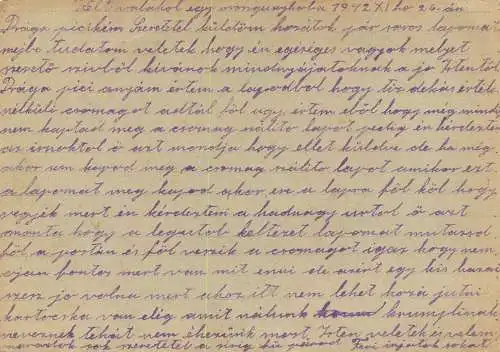 Kelt valahol egy oroszországba 1942 XI hó 26-án
Drága picikém Szeretetel küldöm hozátok pár soros lapomat
mejbe tudatom veletek hogy én egéséges vagyok melyet
szivböl kivánok mindnyájatoknak a jó Isten töl
Drága pici anyám értem a lapodbol hogy tiz dekás érték
nélküli csomagot adtál föl ugy értem ebböl hogy még mindig
nem kaptad meg a csomag szálito lapot pedig én kérdeztem
az irnoktol ö azt mondja hogy ellet küldve de ha még
akor sem kapod meg a csomag szálito lapot amikor ezt
a lapomat meg kapod akor ere a lapra föl köl hogy
vegyék mert én kérdeztem a hadnagy urtol ö azt
monta hogy a legutob keltezet lapomat mutasd
föl a portán és föl veszik a csomagot igaz hogy nem
ojan fontos mert van mit enni de azért egy kis hazai
jo volna mert ahoz itt nem lehet hozá jutni
van elég amit nálunk krumplinak
neveznek tehát nem éhezünk most Isten veletek és velem
sok szeretetel a párod Feri